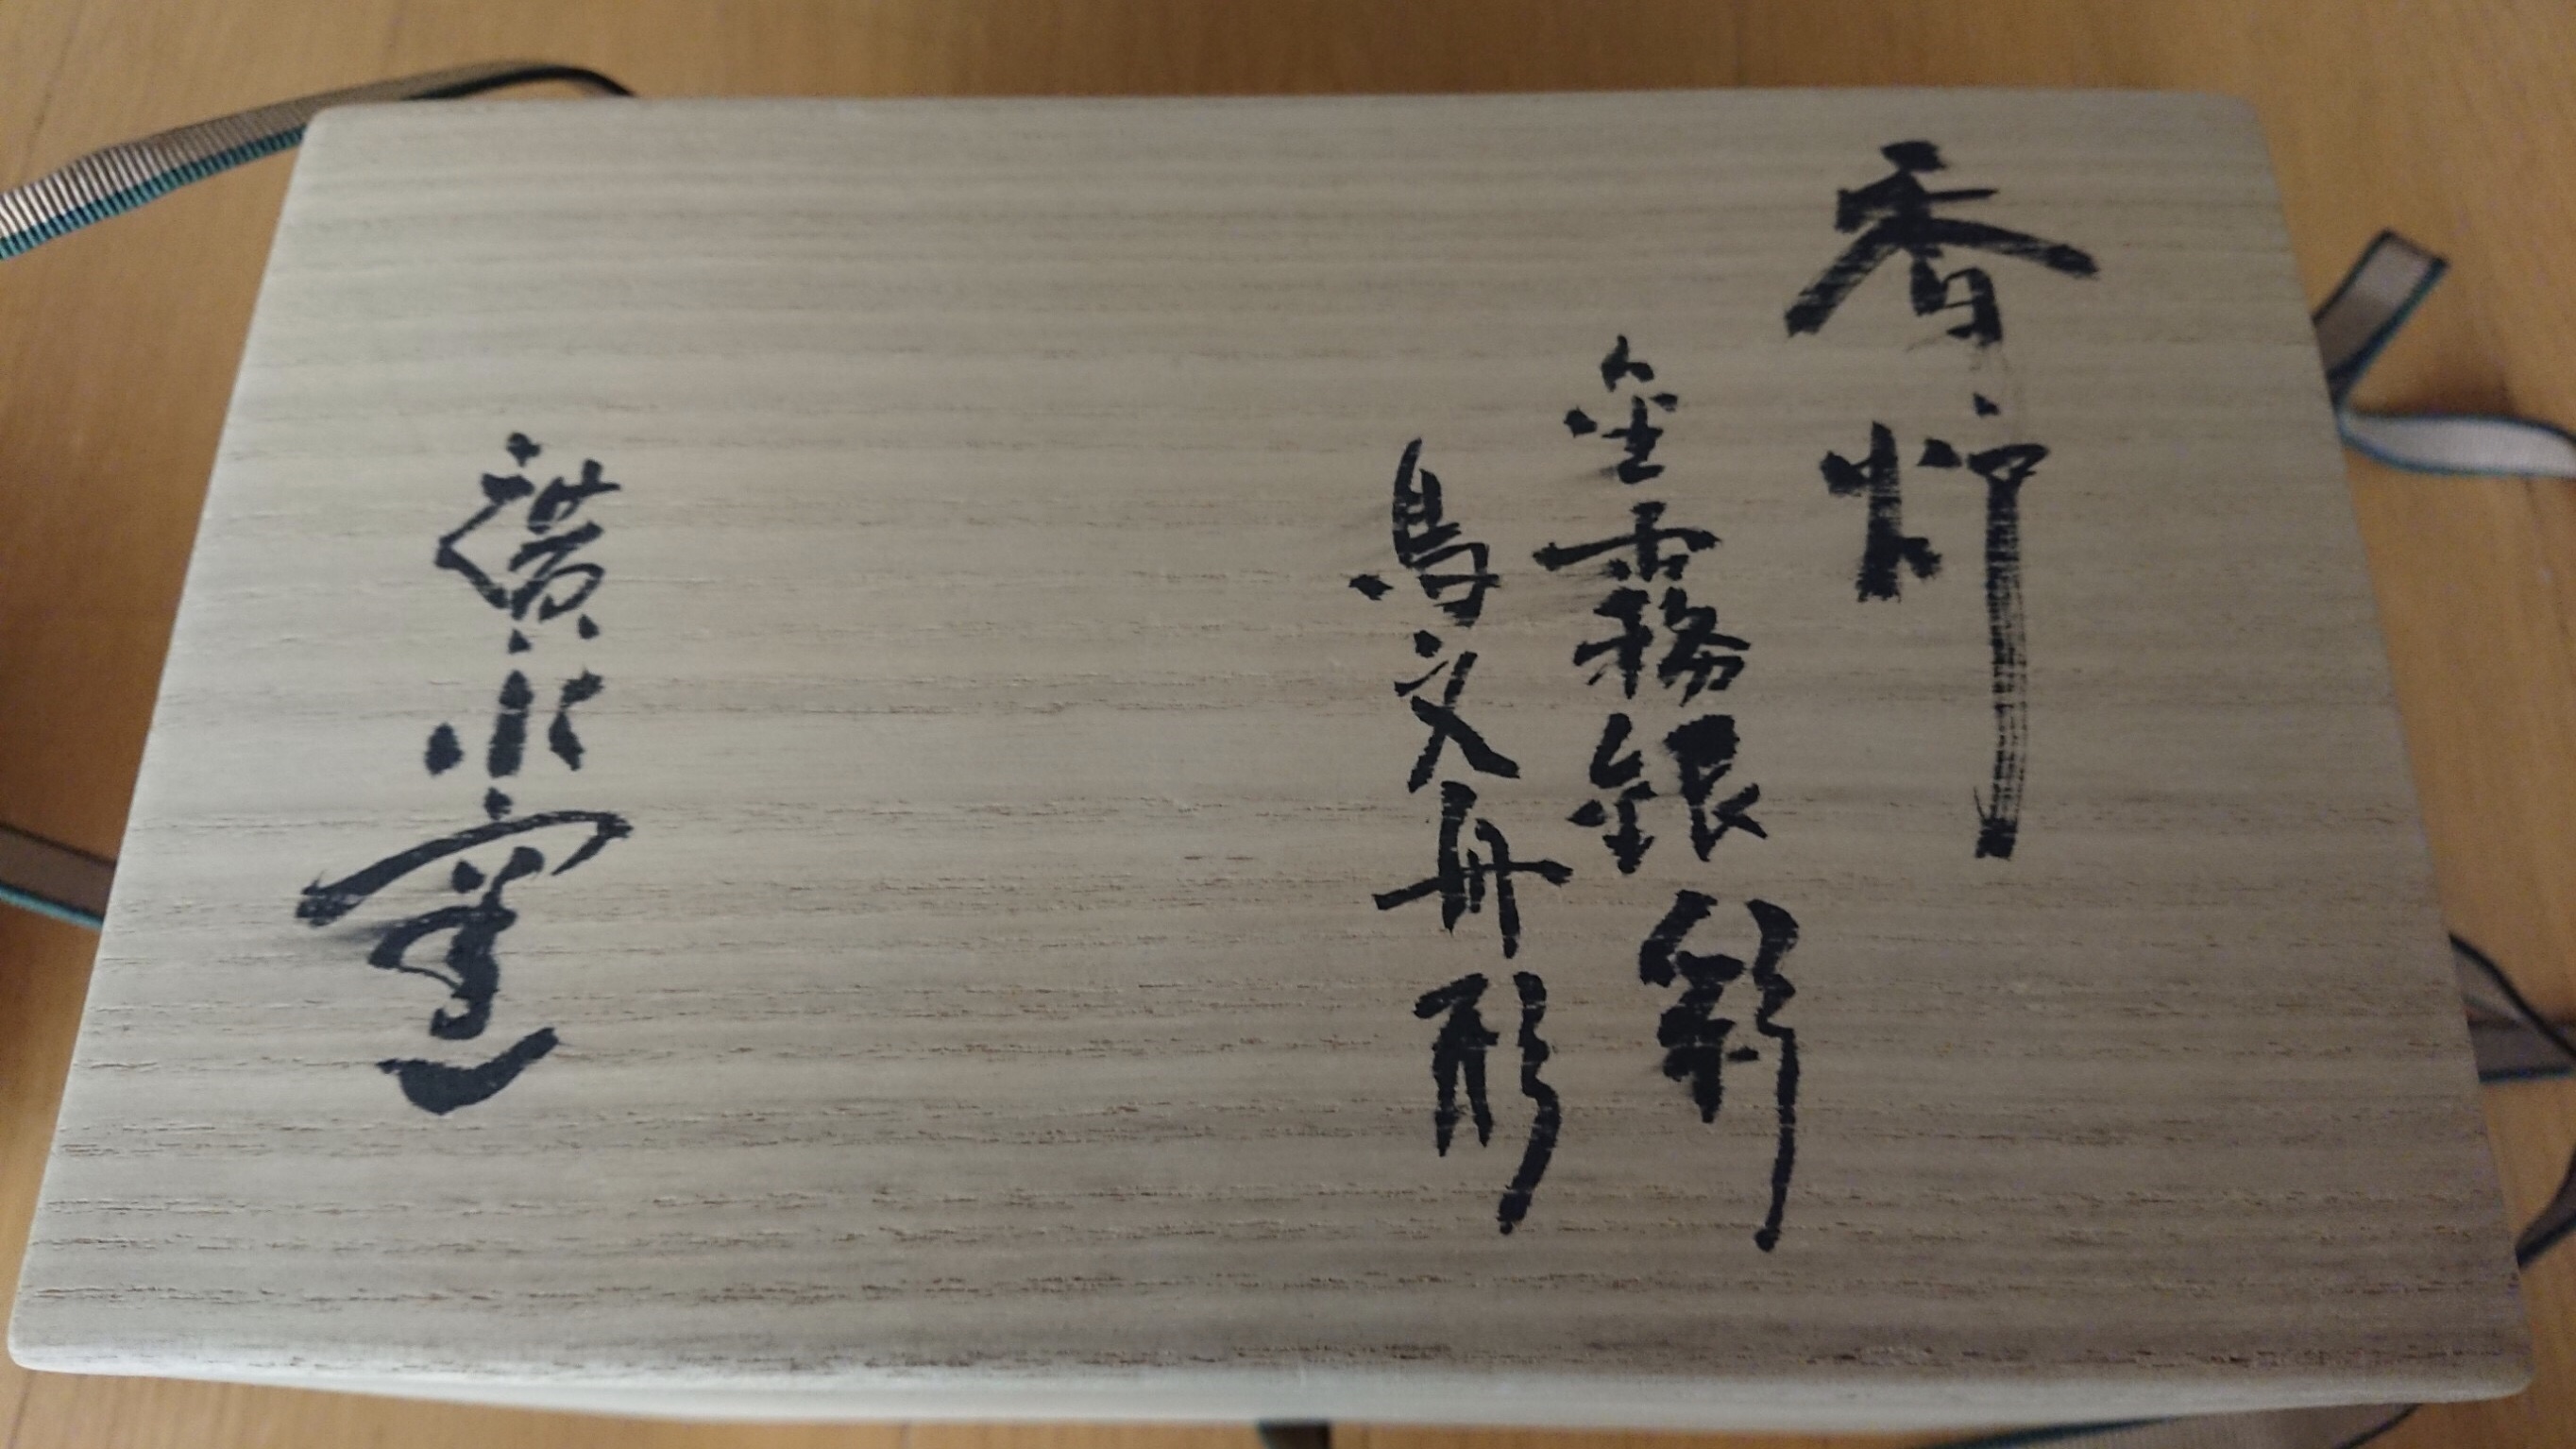 香炉
金霧銀彩
鳥文舟形
横水窯